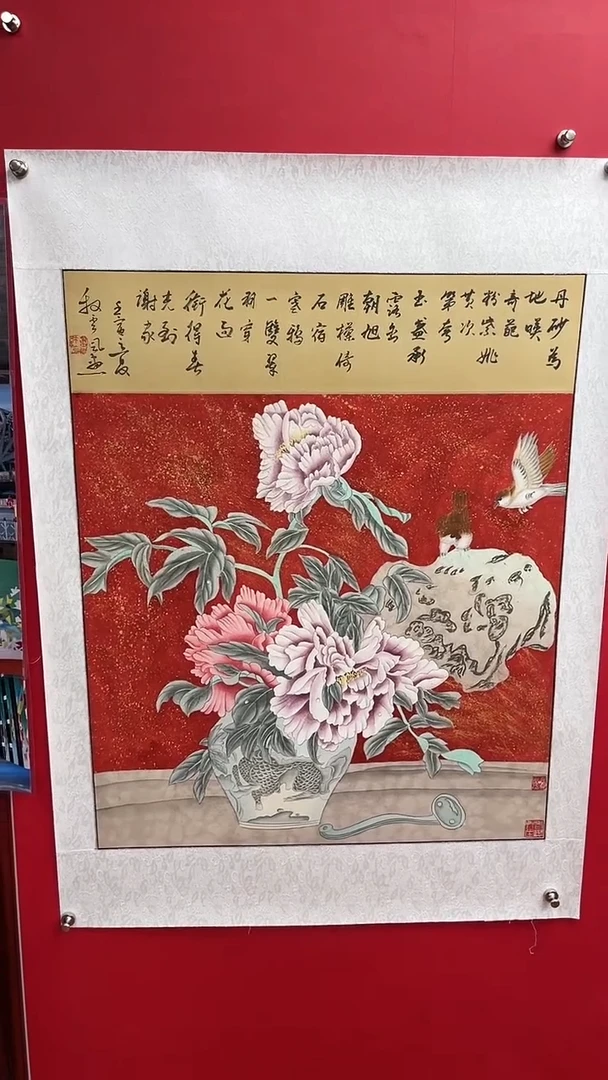 丹砂為
地暎
奇葩
粉紫姚
黃次
第夸
玉盞承
露
朝旭
雕欄倚
石宿
寒鴉
一雙翠
羽穿
花過
銜得春
光到
謝家
壬寅之夏